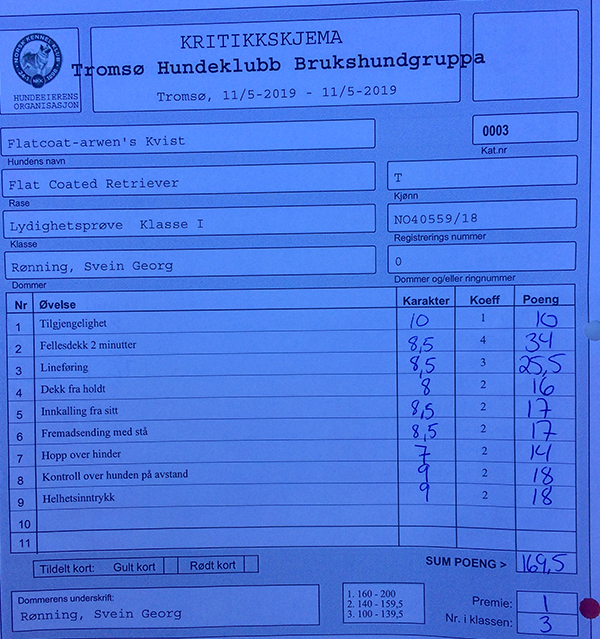 KRITIKKSKJEMA
Tromsø Hundeklubb Brukshundgruppa
Tromsø, 11/5-2019 - 11/5-2019
NORSK KENNEL KLUB
NKK
HUNDEEIERENS
ORGANISASJON
0003
Kat.nr
Flatcoat-arwen's Kvist
Hundens navn
T
Kjønn
Flat Coated Retriever
Rase
NO40559/18
Registrerings nummer
Lydighetsprøve Klasse I
Klasse
0
Dommer og/eller ringnummer
Rønning, Svein Georg
Dommer
Nr Øvelse Karakter Koeff Poeng
1 Tilgjengelighet 10 1 10
2 Fellesdekk 2 minutter 8,5 4 34
3 Lineføring 8,5 3 25,5
4 Dekk fra holdt 8 2 16
5 Innkalling fra sitt 8,5 2 17
6 Fremadsending med stå 8,5 2 17
7 Hopp over hinder 7 2 14
8 Kontroll over hunden på avstand 9 2 18
9 Helhetsinntrykk 9 2 18
10
11
Tildelt kort: Gult kort Rødt kort SUM POENG > 169,5
Dommerens underskrift:
Rønning, Svein Georg
1. 160 - 200
2. 140 - 159,5
3. 100 - 139,5
Premie: 1
Nr. i klassen: 3